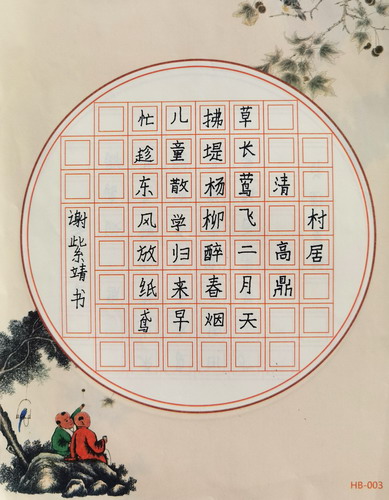 村居
清高鼎
草长莺飞二月天
拂堤杨柳醉春烟
儿童散学归来早
忙趁东风放纸鸢
谢紫靖书
HB-003